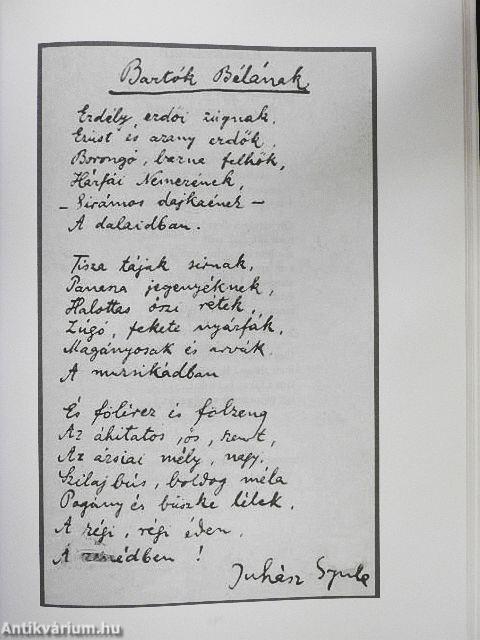 Bartók Bélának
Erdély erdői zúgnak,
Ezüst és arany erdők,
Borongó, barna felhők,
Hárfái Nemerének,
– Sirámos dajkaének –
A dalaidban.
Tisza tájak sirnak,
Panasza jegenyéknek,
Halottas őszi rétek,
Zúgó, fekete nyárfák,
Magányosak és árvák
A muzsikádban
És fölérez és fölzeng
Az áhitatos, ős, szent,
Az ázsiai mély, nagy,
Szilaj bús, boldog méla
Pogány és büszke lélek.
A régi, régi éden,
A zenédben!
Juhász Gyula
Antikvárium.hu